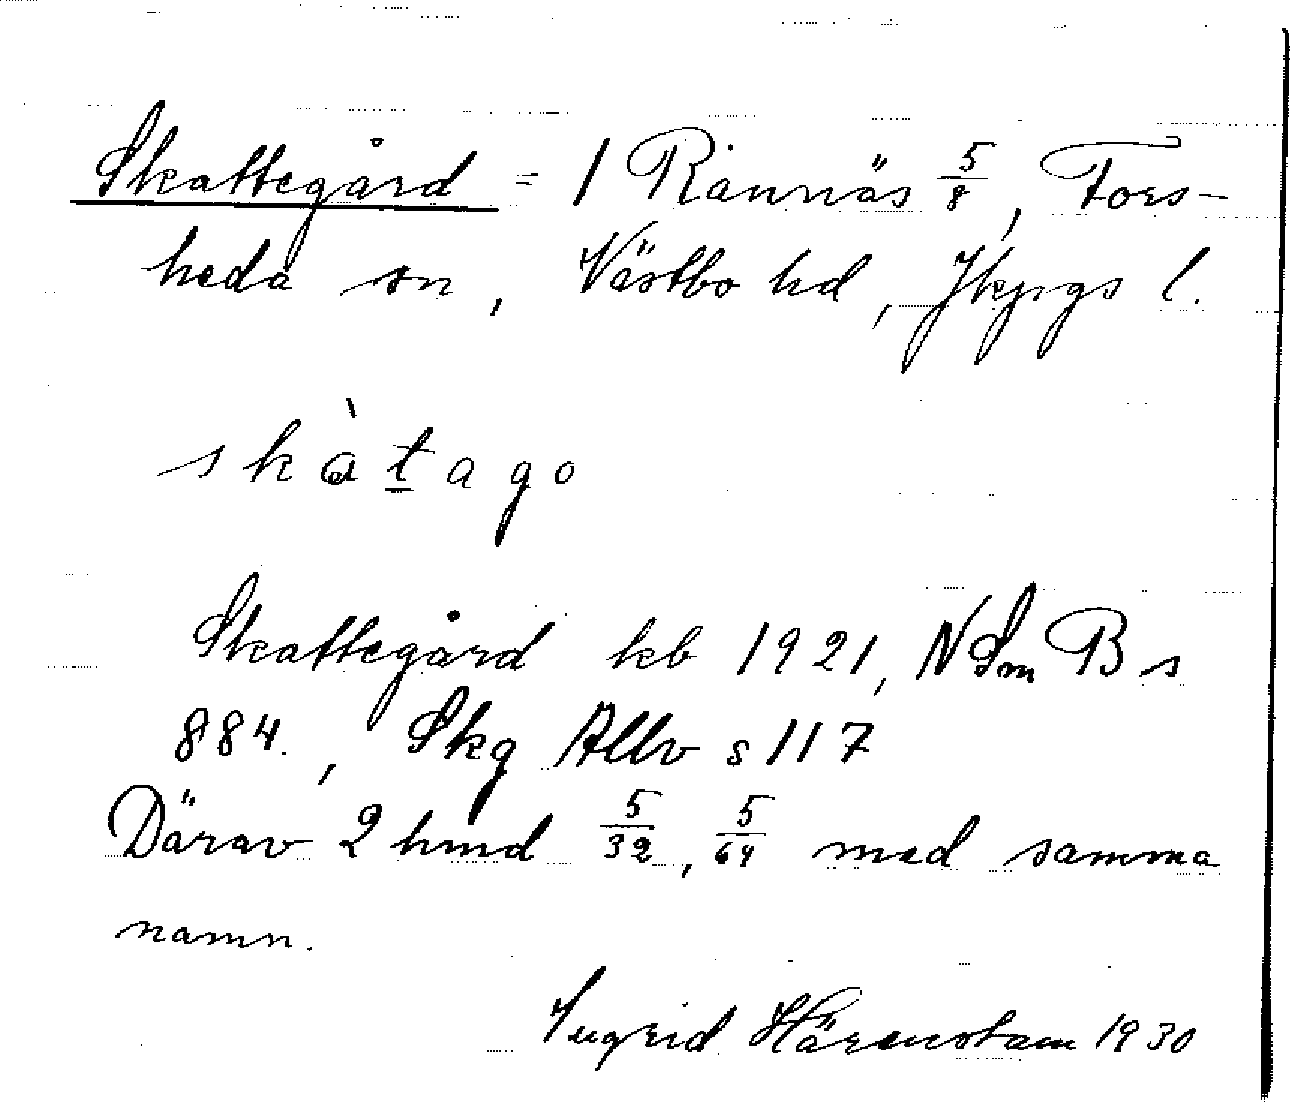 Skattegård = 1 Rännäs 5/8, Fors-
heda sn, Västbo hd, Jkpgs l.
skàtago
Skattegård kb 1921, NSmB s
884., Skg Allv s 117
Därav 2 hmd 5/32, 5/64 med samma
namn.
Ingrid Härenstam 1930